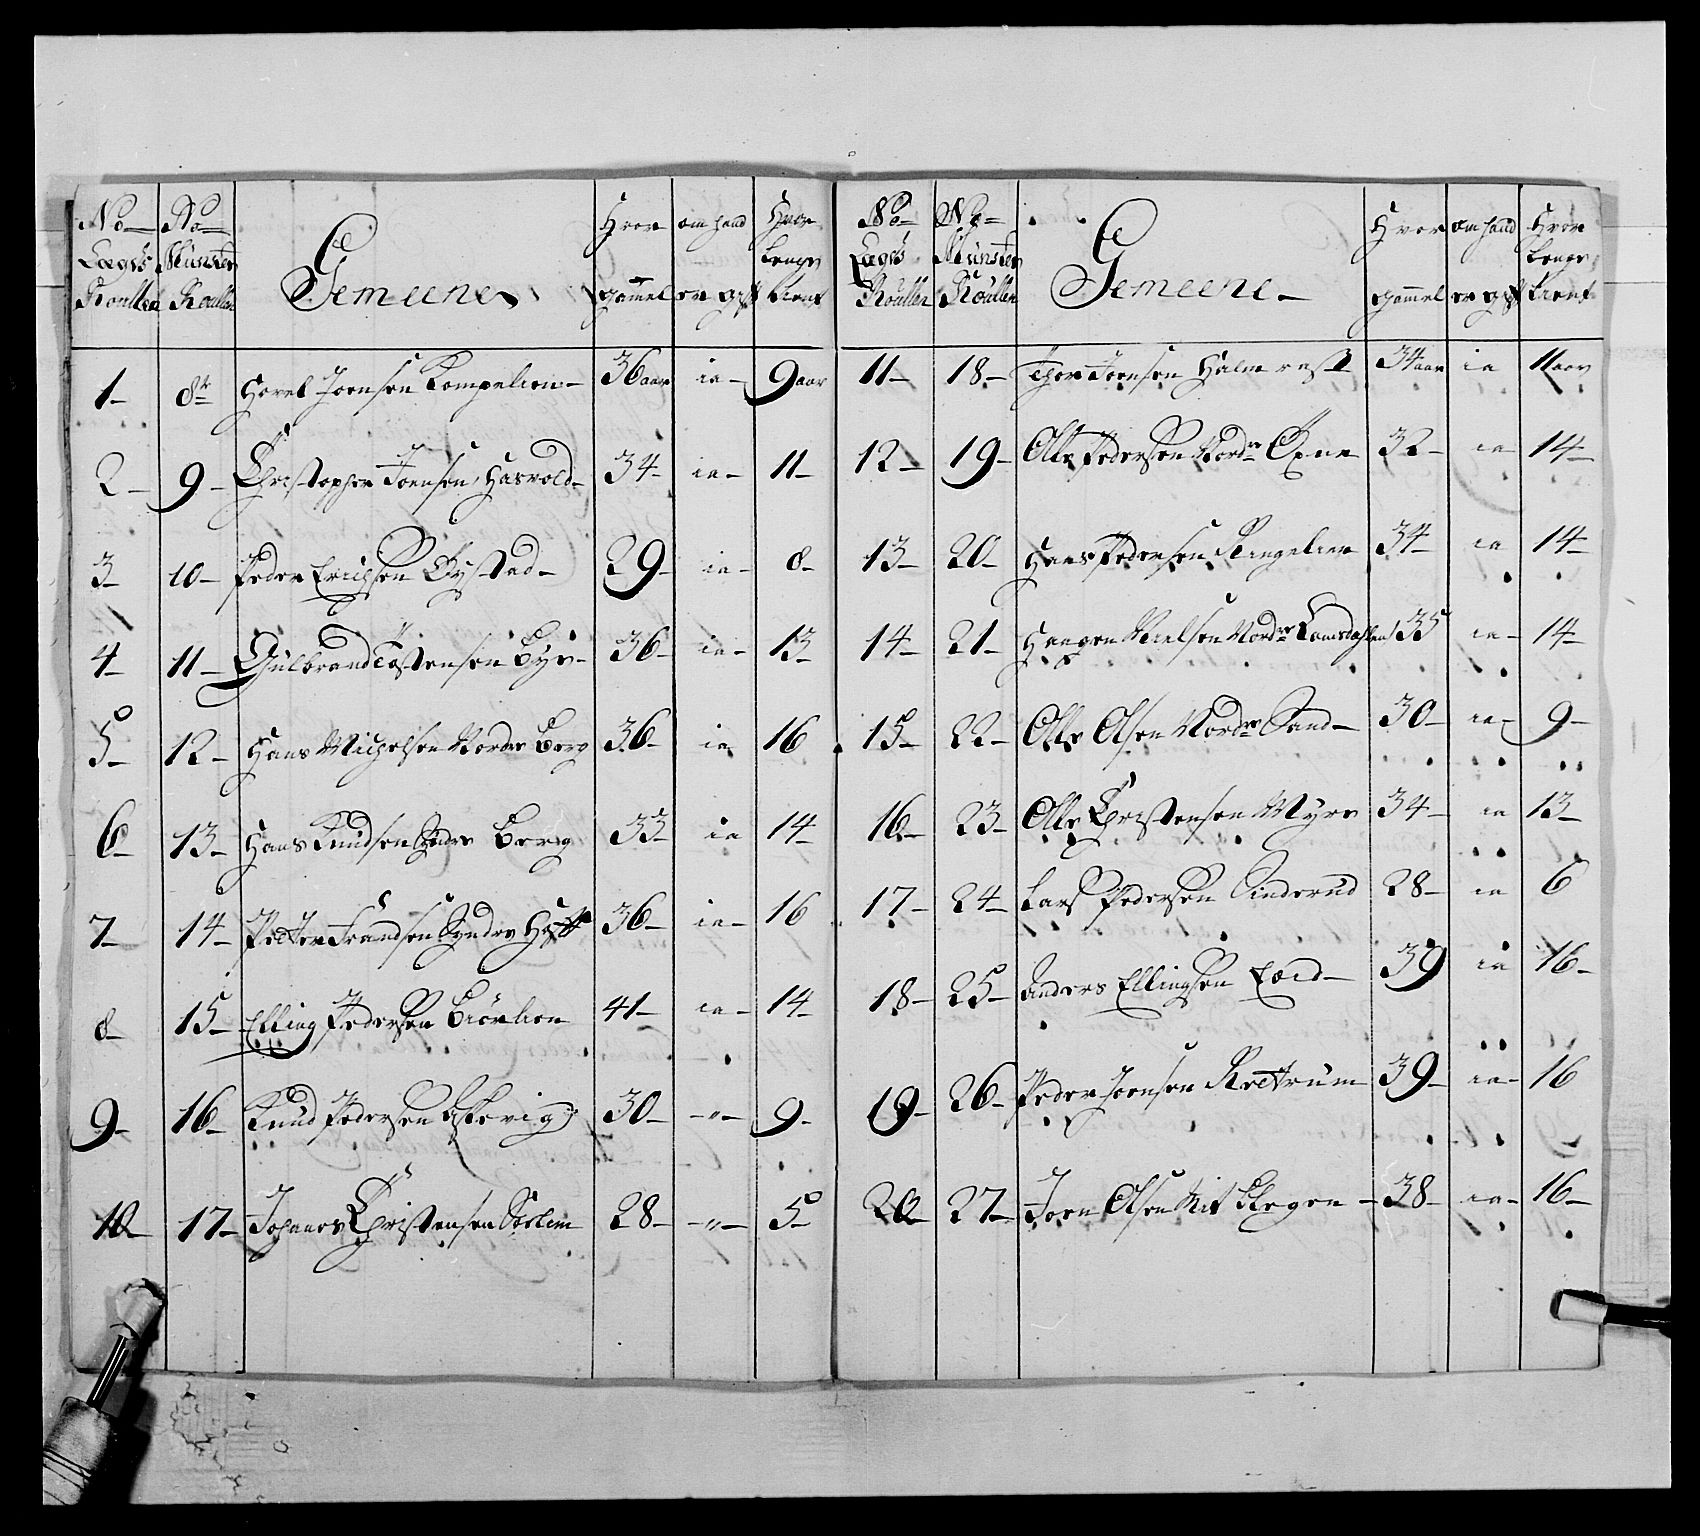 No Laugs Roullen | No Münster Roullen | Gemeene | Hvor gammel | om hand er gift | Hvor Lenge tient
1 - | 8de | Hovel Joensen Kompelien - | 36 aar | ia - | 9 aar
2 - | 9 - | Christopher Joensen Hasvold - | 34 - | ia - | 11 -
3 - | 10 - | Peder Erichsen Øystad - | 29 - | ia - | 8 -
4 - | 11 - | Gulbrand Tostensen Bye - | 36 - | ia - | 13 -
5 - | 12 - | Hans Michelsen Nordre Berg | 36 - | ia | 16
6 - | 13 - | Hans Knudsen Syndre Berg | 33 - | ia | 14
7 - | 14 - | Petter Frandsen Syndre | 36 - | ia - | 16
8 - | 15 - | Elling Pedersen Biørlien | 41 - | ia - | 14
9 - | 16 - | Knud Pedersen | 30 - | - " - | 9 -
10 - | 17 - | Johanes Christensen Sørlim | 28 - | - " - | 5 -
No Laugs Roullen | No Münster Roullen | Gemeene - | Hvor gammel | om hand er gift | Hvor Lenge tient
11 - | 18 - | Thor Joensen | 34 aar | ia | 11 aar
12 - | 19 - | Olle Pedersen Nordre Øxne | 32 - | ia - | 14 -
13 - | 20 - | Hans Pedersen Ringelien | 34 - | ia | 14 -
14 - | 21 - | Haagen Nielsen Nordre Lomsdahlen | 35 | ia - | 14 -
15 - | 22 - | Olle Olsen Nordre Sand - | 30 - | ia - | 9 -
16 - | 23 - | Olle Christensen Myre | 34 - | ia | 13 -
17 - | 24 - | Lars Pedersen Sinderud | 28 - | ia | 6
18 - | 25 - | Anders Ellingsen Eid - | 39 | ia | 16 -
19 - | 26 - | Peder Joensen Røttrum | 39 - | ia - | 16
20 | 27 - | Joen Olsen - | 38 - | ia - | 16 -